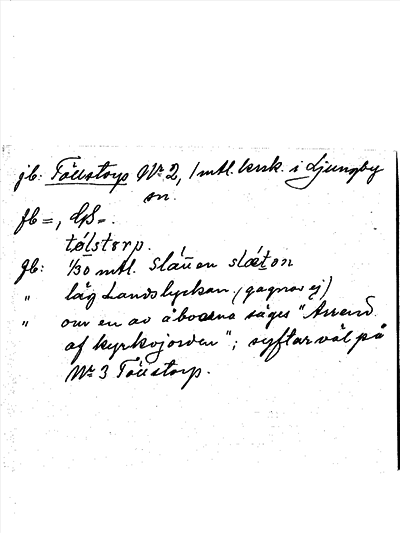 jb: Tölstorp Nr 2, 1 mtl. krsk. i Ljungby
sn.
fb =, GS =.
tølstorp.
gb: 1/30 mtl. slätten slǽton
" låg Landslyckan. (gagnar ej)
" om en av åboarna säges "Arrend.
af kyrkojorden"; syftar väl på
Nr 3 Tölstorp.